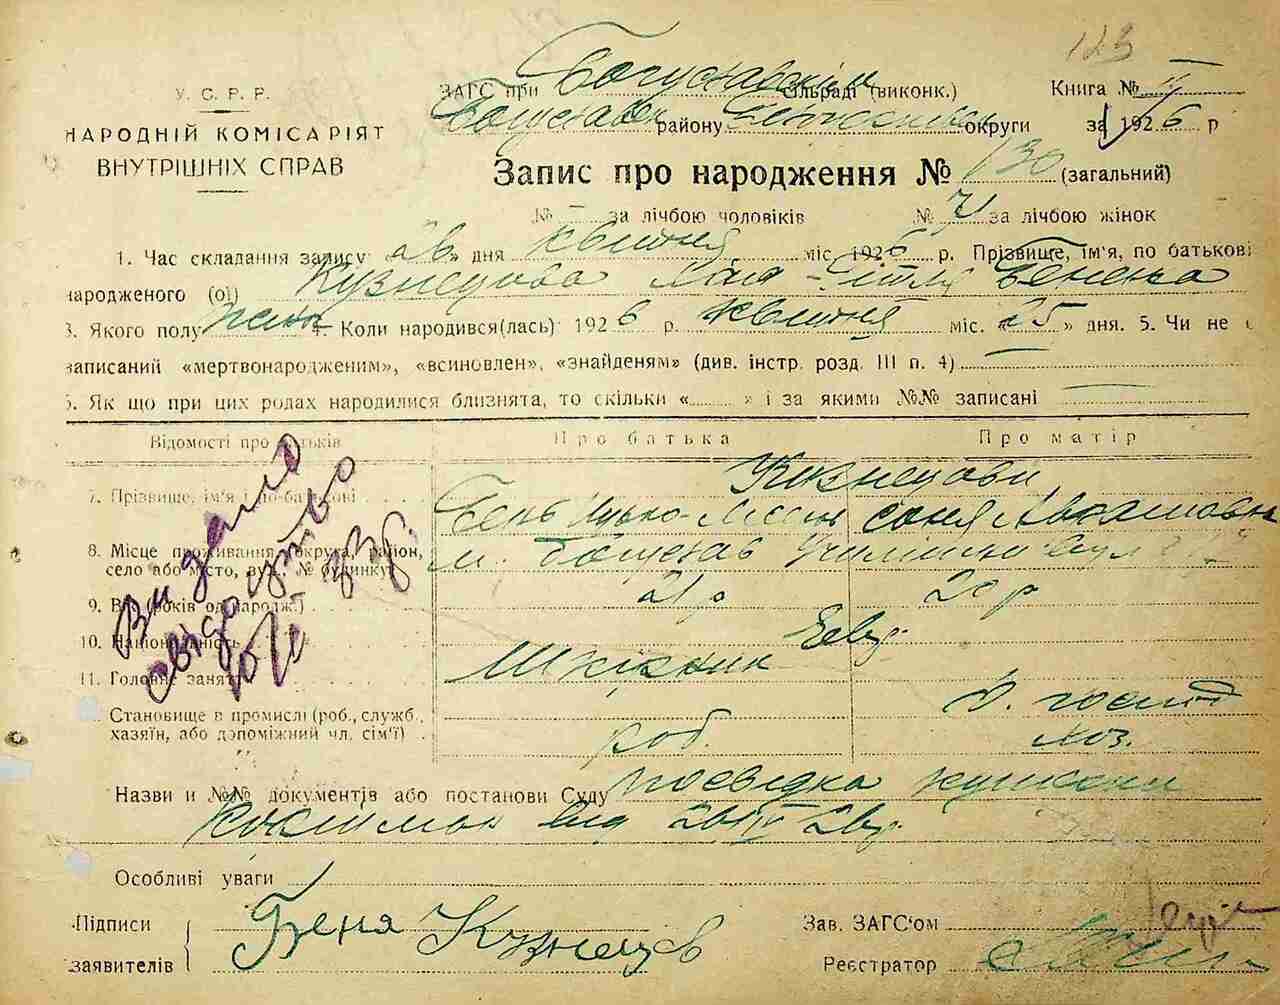 123
У. С. Р. Р.
НАРОДНІЙ КОМІСАРІЯТ
ВНУТРІШНІХ СПРАВ
ЗАГС при Богуславскім Сільраді (виконк.) Книга №
Богуславск району округи за 1926 р
Запис про народження № 130 (загальний)
№ — за лічбою чоловіків № за лічбою жінок
1. Час складання запису „26“ дня квітня міс. 1926 р. Прізвище, ім'я, по батькові
народженого (ої) Кузнецова
3. Якого полу жін 4. Коли народився(лась) 1926 р. квітня міс. «25» дня. 5. Чи не є
записаний «мертвонародженим», «всиновлен», «знайденям» (див. інстр. розд. III п. 4)
6. Як що при цих родах народилися близнята, то скільки « » і за якими №№ записані
Відомості про батьків Про батька Про матір
7. Прізвище, ім'я і по-батькові Кузнецови
Бень Соня Абрамовна
8. Місце проживання, округа, район, м. Богуслав
село або місто, вул. № будинку
9. Вік (років од народж.) 21 р 20 р
10. Національність Евр.
11. Головне заняття Шкірник
Становище в промислі (роб., служб., хазяїн, або допоміжний чл. сім'ї) роб. хоз.
Видано
свідоцтво
33 р.
Назви и №№ документів або постанови Суду посвідка
від 26/IV 26 р.
Особливі уваги
Підписи
заявителів
Беня Кузнецов
Зав. ЗАГС'ом
Реєстратор